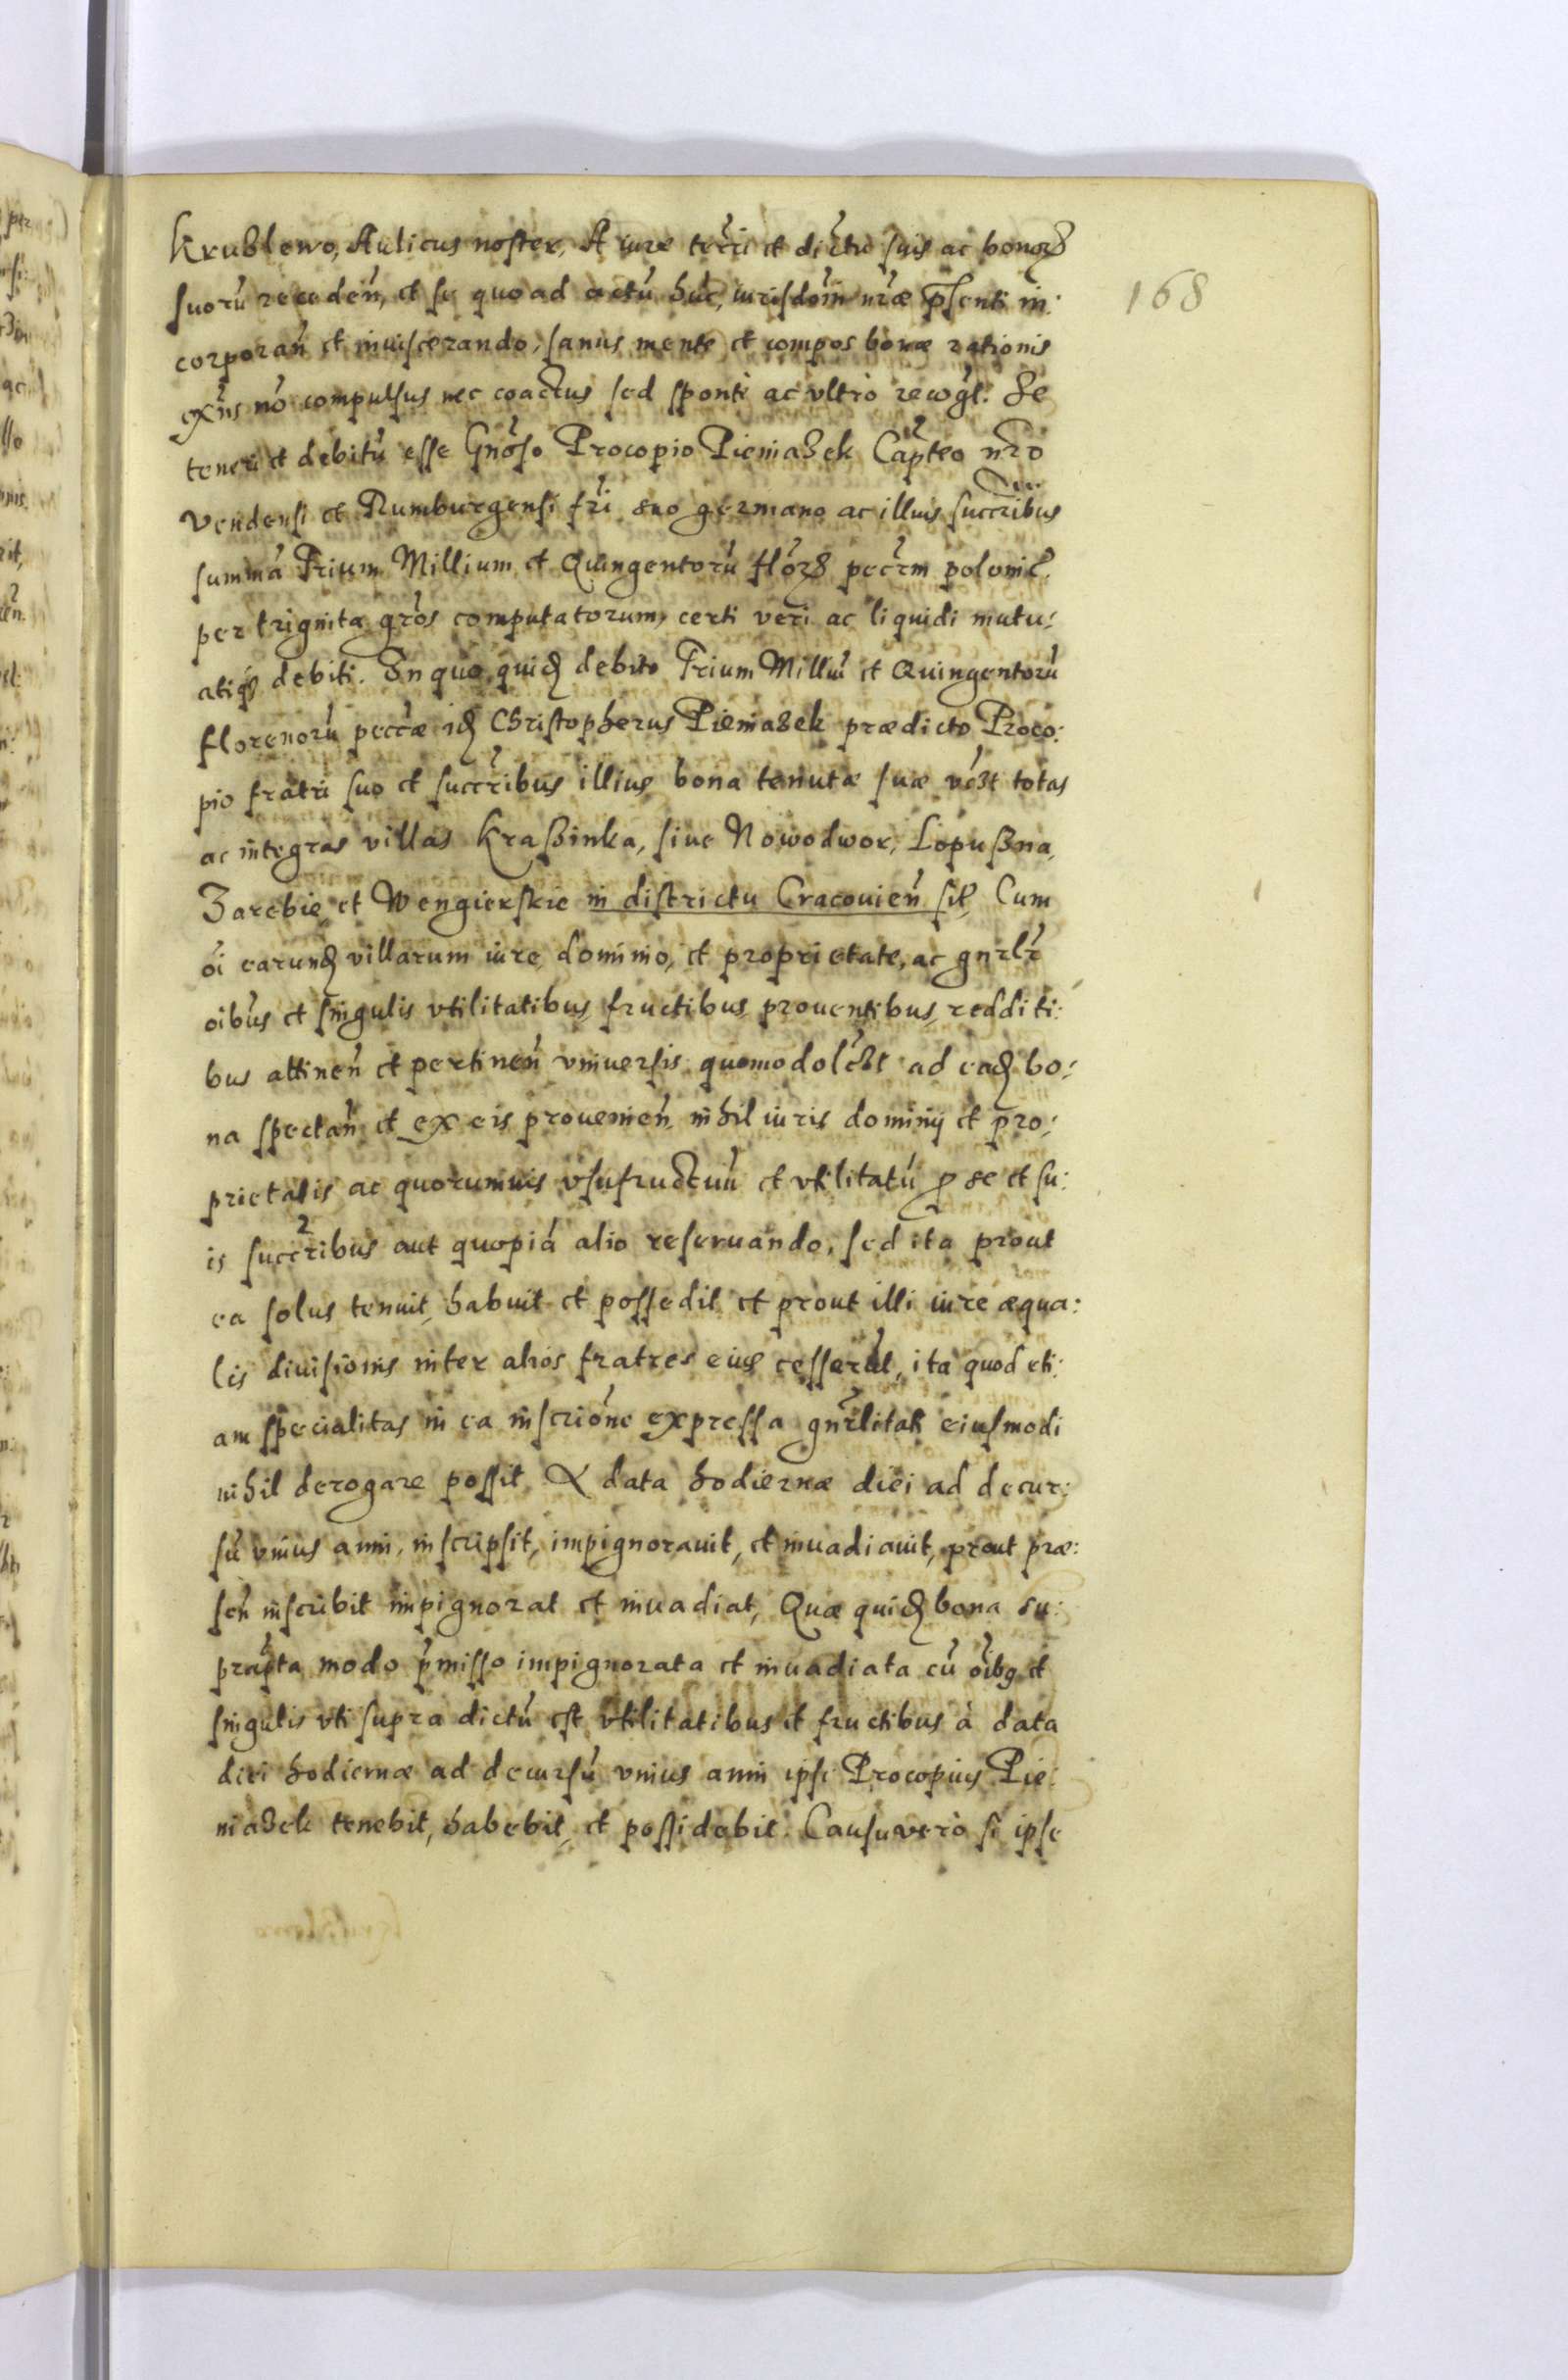 Krużlowo, Aulicus noster, A iure terri et distu suis ac bonorꝫ
suorũ receden̄, et se quoad actũ hũc, iurisdoīn nrãe p̃senti in:
corporan̄ et inuiscerando, sanus mente et compos bonæ rationis
exñs nõ compulsus nec coactus sed sponte ac vltrò recogt. Se
teneri et debitũ esse Gnõso Procopio Pieniażek Capteo nr̃o
168
Vendensi et Rumburgensi fr̃i suo germano ac illius succr̃ibus
summã Trium Millium et Quingentorũ flõrꝫ pecr̃m polonic̃.
per trignita grõs computatorum, certi veri ac liquidi mutu:
atiqꝫ debiti. In quo quidꝫ debito Trium Milliũ et Quingentorũ
florenorũ peccæ idꝫ Christopherus Pieniażek prædicto Proco:
pio fratri suo et succr̃ibus illius bona tenutæ suæ vcꝫt totas
ac integras villas Kraßinka, siue Nowodwor, Lopußna,
Zarebie et Wengierskie in districtu Cracouien̄ sit, Cum
oi earundꝫ villarum iure, dominio, et proprietate, ac gnrl̃r
oibũs et singulis vtilitatibus, fructibus prouentibus, redditi:
bus attinen̄ et pertinen̄ vniuersis quomodolc̃ꝫt ad eadꝫ bo:
na spectan̄ et ex eis prouenien̄ nihil iuris dominij et pro:
prietatis ac quorumuis vsufructuũ et vtilitatũ ꝓ se et su:
is succr̃ibus aut quopiã alio reseruando, sed ita prout
ea solus tenuit, habuit et possedit et prout illi iure æqua:
lis diuisionis inter alios fratres eius cesserũt, ita quod eti:
am specialitas in ea inscriõne expressa gnr̃litati eiusmodi
nihil derogare possit A data hodiernæ diei ad decur:
sũ vnius anni, inscripsit, impignorauit, et inuadiauit, prout præ:
sen̄ inscribit impignorat et inuadiat, Quæ quidꝫ bona su:
prap̃ta modo p̃misso impignorata et inuadiata cũ oĩbꝫ et
singulis vti supra dictũ est vtilitatibus et fructibus à data
diei hodiernæ ad decursũ vnius anni ipse Procopius Pie:
niażek tenebit, habebit, et possidebit. Casu verò si ipse